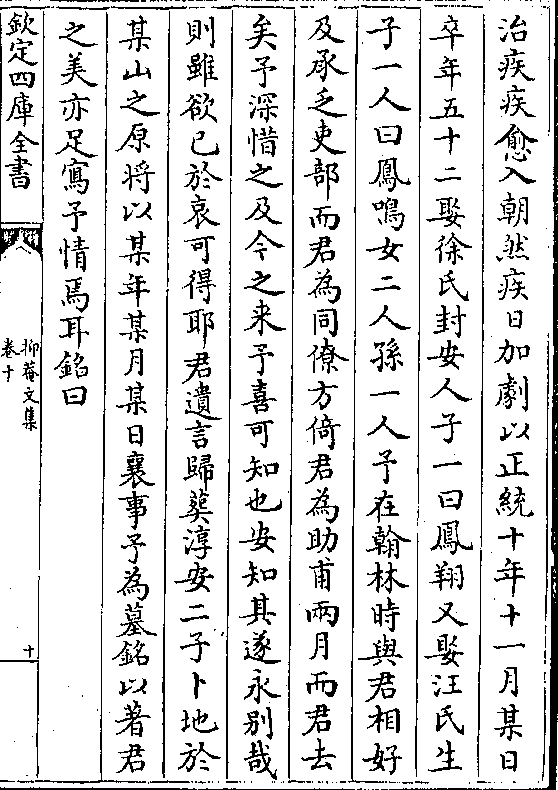 治疾疾愈入朝然疾日加劇以正統十年十一月某日
卒年五十二娶徐氏封安人子一曰鳳翔又娶汪氏生
子一人曰鳳鳴女二人孫一人予在翰林時與君相好
及承乏吏部而君為同僚方倚君為助甫兩月而君去
矣予深惜之及今之来予喜可知也安知其遂永别哉
則雖欲已於哀可得耶君遺言歸葬淳安二子卜地於
某山之原将以某年某月某日襄事予為墓銘以著君
之美亦足寫予情焉耳銘曰
欽定四庫全書
抑菴文集
卷十
十